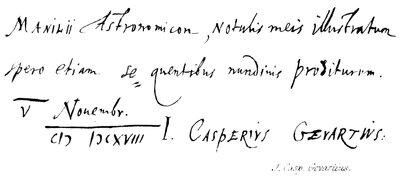 MANILII Astronomicon, Notulis meis illustratum
spero etiam sequentibus nundinis proditurum.
V Novembr.
CIↃ IↃCXVIII I. CASPERIUS GEVARTIUS.
J. Casp. Gevartius.